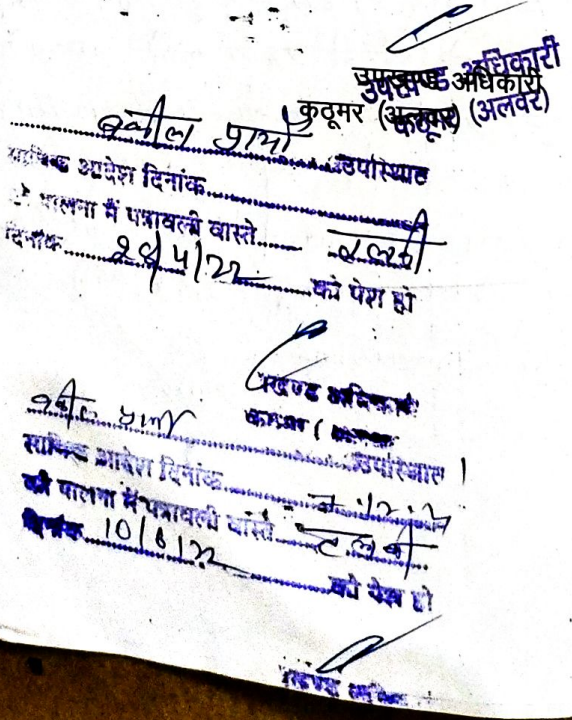 उपखण्ड अधिकारी
कठूमर (अलवर)
वकील प्रार्थी उपस्थित
साबिक आदेश दिनांक
की पालना में पत्रावली वास्ते तलबी
दिनांक 26/4/22 को पेश हो
उपखण्ड अधिकारी
कठूमर (
वकील प्रार्थी उपस्थित ।
साबिक आदेश दिनांक
की पालना में पत्रावली वास्ते तलबी
दिनांक 10/6/22 को पेश हो
उपखण्ड अधिकारी